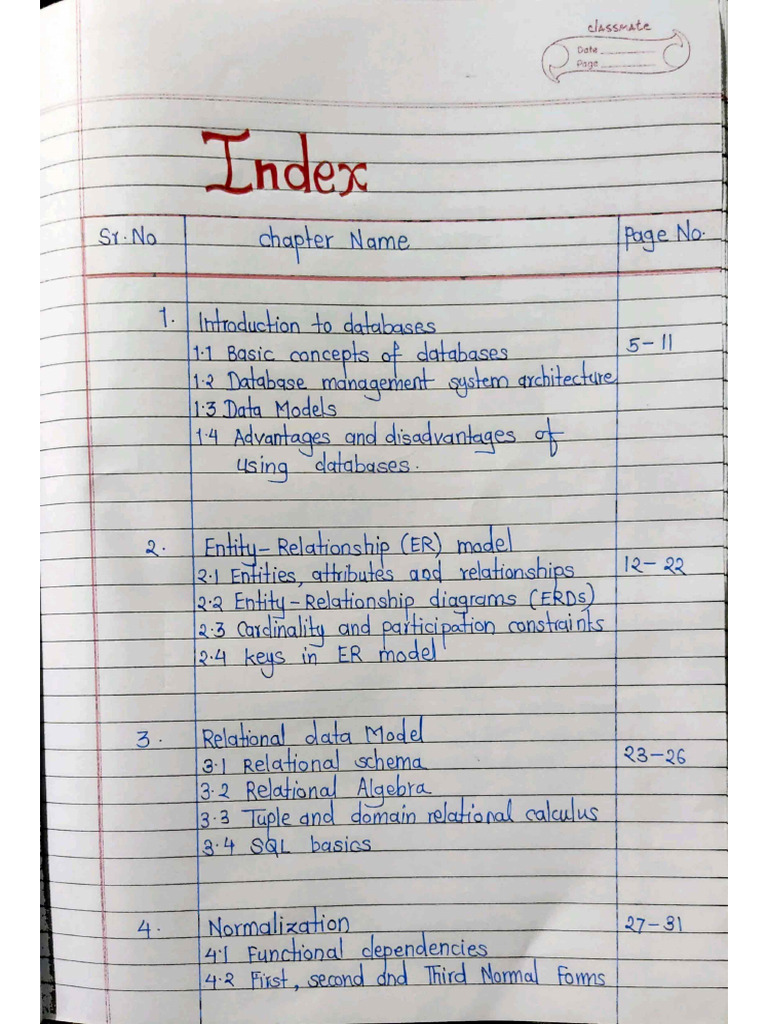 classmate
Date
Page
Index
Sr.No chapter Name Page No.
1. Introduction to databases
5-11
1.1 Basic concepts of databases
1.2 Database management system architecture
1.3 Data Models
1.4 Advantages and disadvantages of
using databases.
2. Entity-Relationship (ER) model
12-22
2.1 Entities, attributes and relationships
2.2 Entity-Relationship diagrams (ERDs)
2.3 Cardinality and participation constraints
2.4 keys in ER model
3. Relational data Model
23-26
3.1 Relational schema
3.2 Relational Algebra
3.3 Tuple and domain relational calculus
3.4 SQL basics
4. Normalization 27-31
4.1 Functional dependencies
4.2 First, second and Third Normal Forms